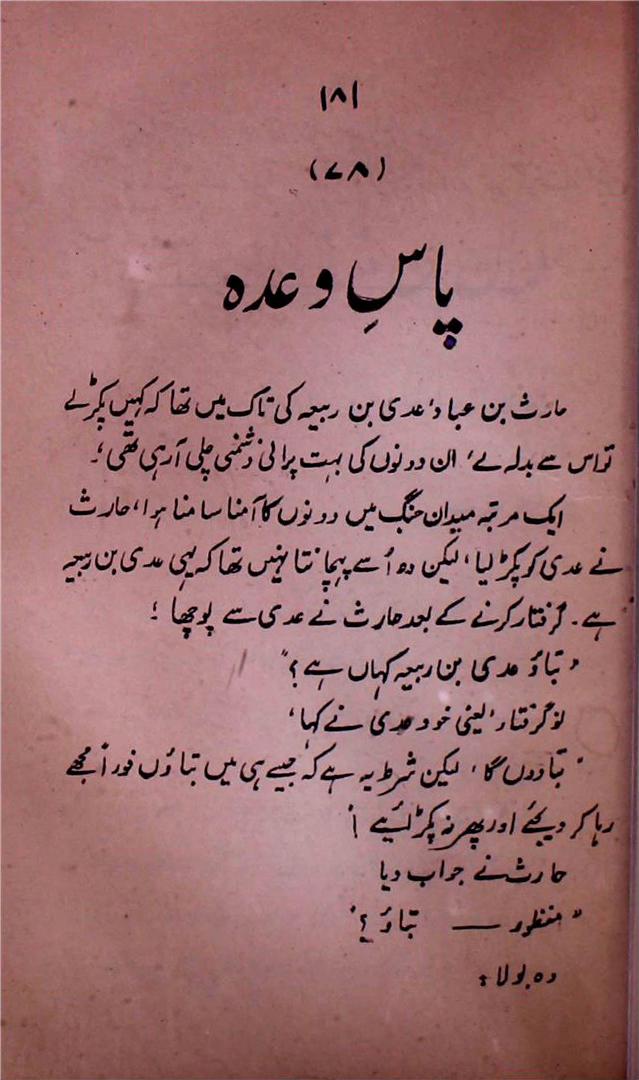 ۱۸۱
(۷۸)
پاسِ وعدہ
حارث بن عباد، عدی بن ربیعہ کی تاک میں تھا کہ کہیں پکڑلے
تو اس سے بدلہ لے، ان دونوں کی بہت پرانی دشمنی چلی آرہی تھی،۔
ایک مرتبہ میدان جنگ میں دونوں کا آمنا سامنا ہوا، حارث
نے عدی کو پکڑ لیا، لیکن وہ اُسے پہچانتا نہیں تھا کہ یہی عدی بن ربیعہ
ہے۔ گرفتار کرنے کے بعد حارث نے عدی سے پوچھا :
"بتاؤ عدی بن ربیعہ کہاں ہے؟"
نو گرفتار، یعنی خود عدی نے کہا،
"بتادوں گا، لیکن شرط یہ ہے کہ جیسے ہی میں بتاؤں فوراً مجھے
رہا کر دیجئے اور پھر نہ پکڑلئیے !
حارث نے جواب دیا
"منظور — بتاؤ؟"
وہ بولا :